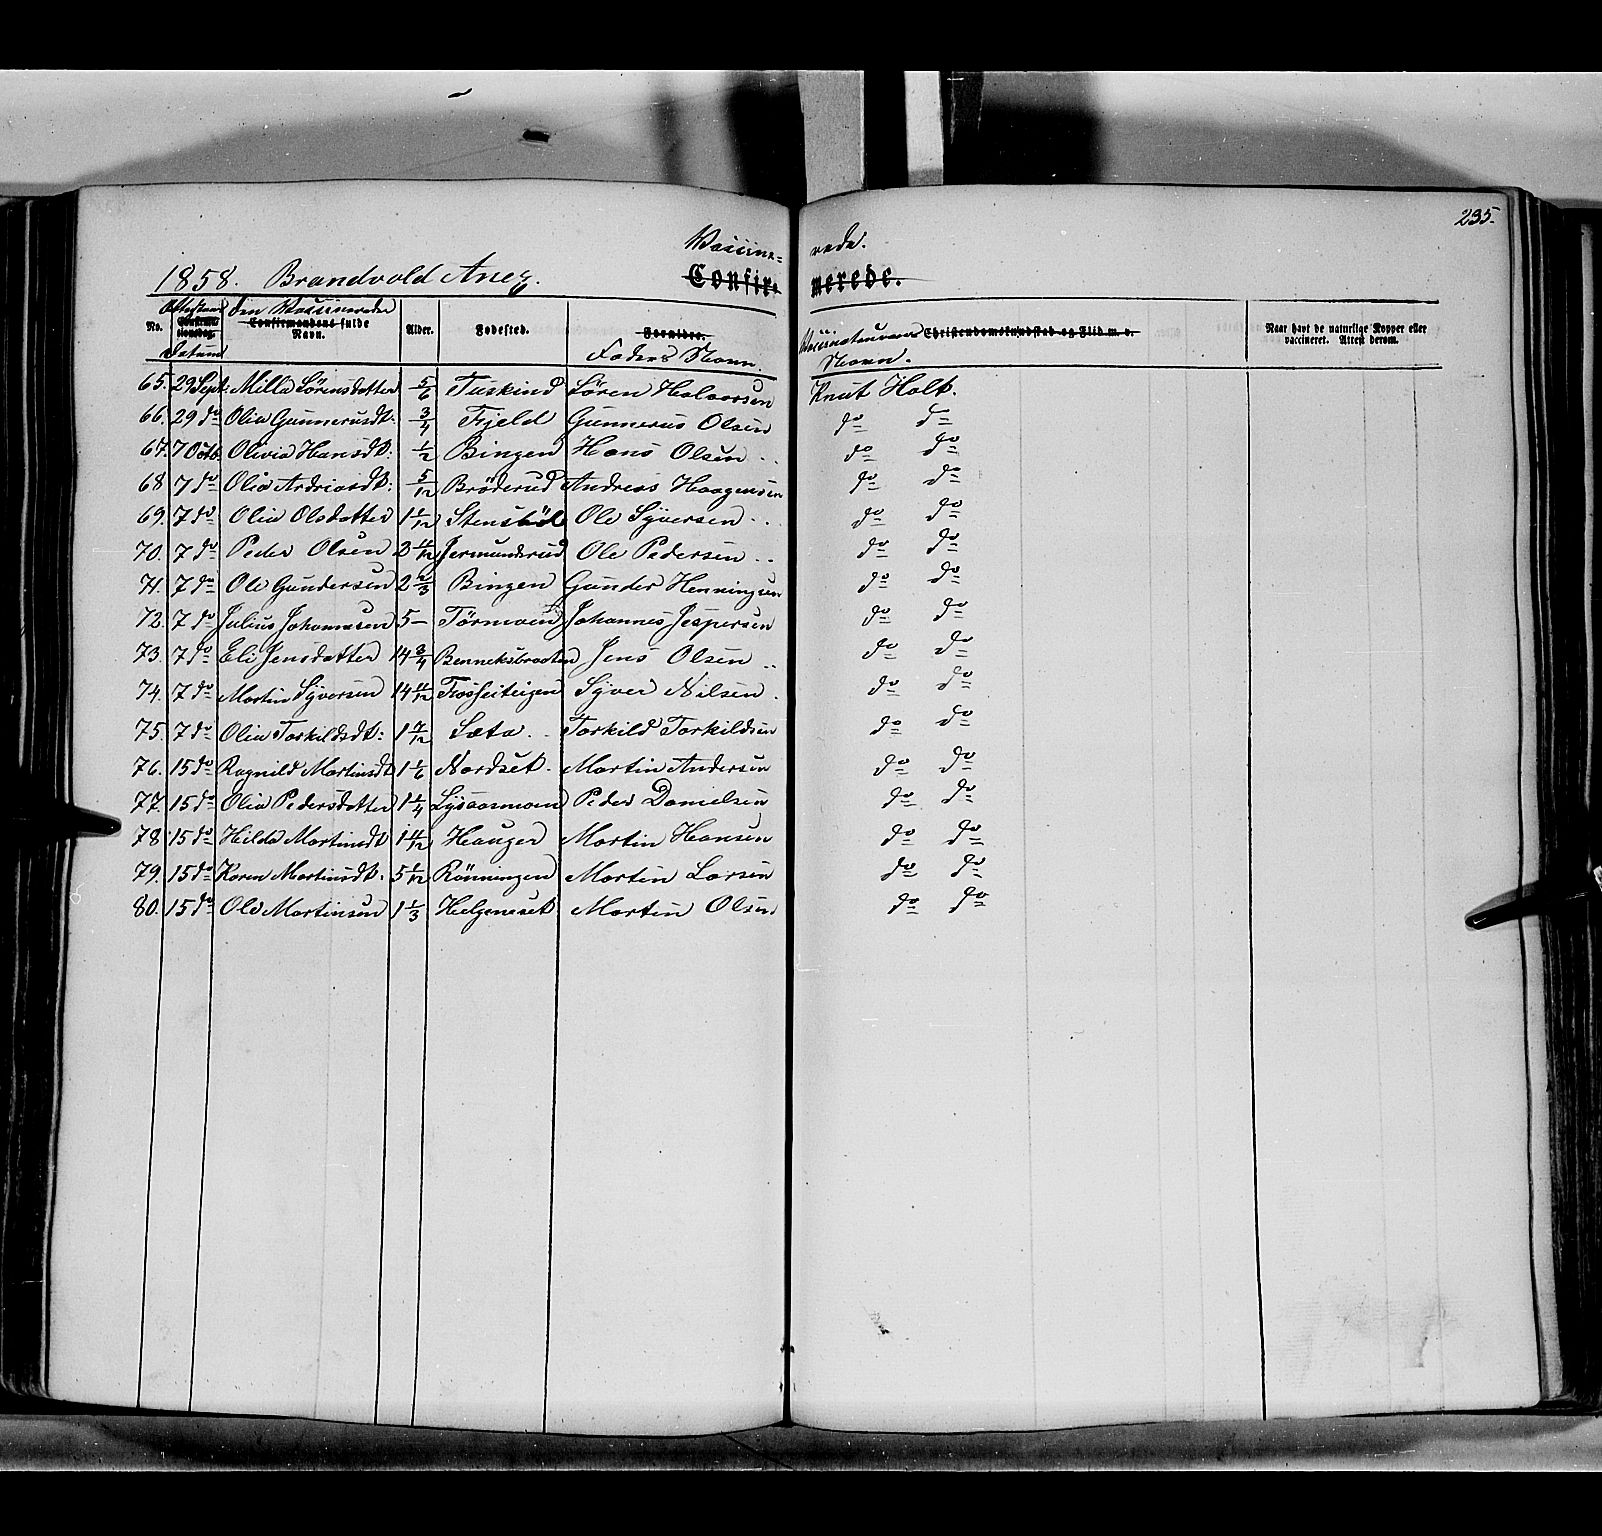 235.
Vaccine= rede.
1858. Brandvold Anex.
Confir= merede.
No. Attestens Confirmationsdag. Datum den Vaccineredes Confirmandens fulde Navn. Alder. Fødested. Forældre. Faders Navn. Vaccinateurens Navn. Christendomskundskab og Flid m. v. Naar havt de naturlige Kopper eller vaccineret. Attest derom.
65. 29 Sept. Milla Sörensdatter 5/6 Tuskind Sören Halvorsen Knut Holt.
66. 29 do Olia Gunnerusdt: 3/4 Fjeld Gunnerus Olsen do do
67. 7 Octb. Olivia Hansdt: 1/2 Bingen Hans Olsen do do
68 7 do Olia Andriasdt: 5/12 Bröderud Andreas Haagensen do do
69. 7 do Olia Olsdatter 1 1/12 Ole Syversen do do
70. 7 do Peder Olsen Jermunderud Ole Pedersen do do
71. 7 do Ole Gundersen 2 2/3 Bingen Gunder Henningsen do do
72. 7 do Julius Johannesen 5 — Törmoen Johannes Jespersen do do
73. 7 do Eli Jensdatter 14 3/4 Benneksbraaten Jens Olsen do do
74. 7 do Martin Syversen 14 11/12 Syver Nilsen do do
75. 7 do Olia Torkildsdt: 1 7/12 Sæta Torkild Torkildsen do do
76. 15 do Ragnild Martinsdt 1 1/6 Nordset Martin Andersen do do
77. 15 do Olia Pedersdatter 1 1/4 Lysaasmoen Peder Danielsen do do
78 15 do Hilda Martinsdt 1 11/12 Hauger Martin Hansen do do
79. 15 do Karen Martinsdt. 5 1/12 Rönningen Martin Larsen do do
80. 15 do Ole Martinsen 1 1/3 Helgeneset Martin Olsen do do